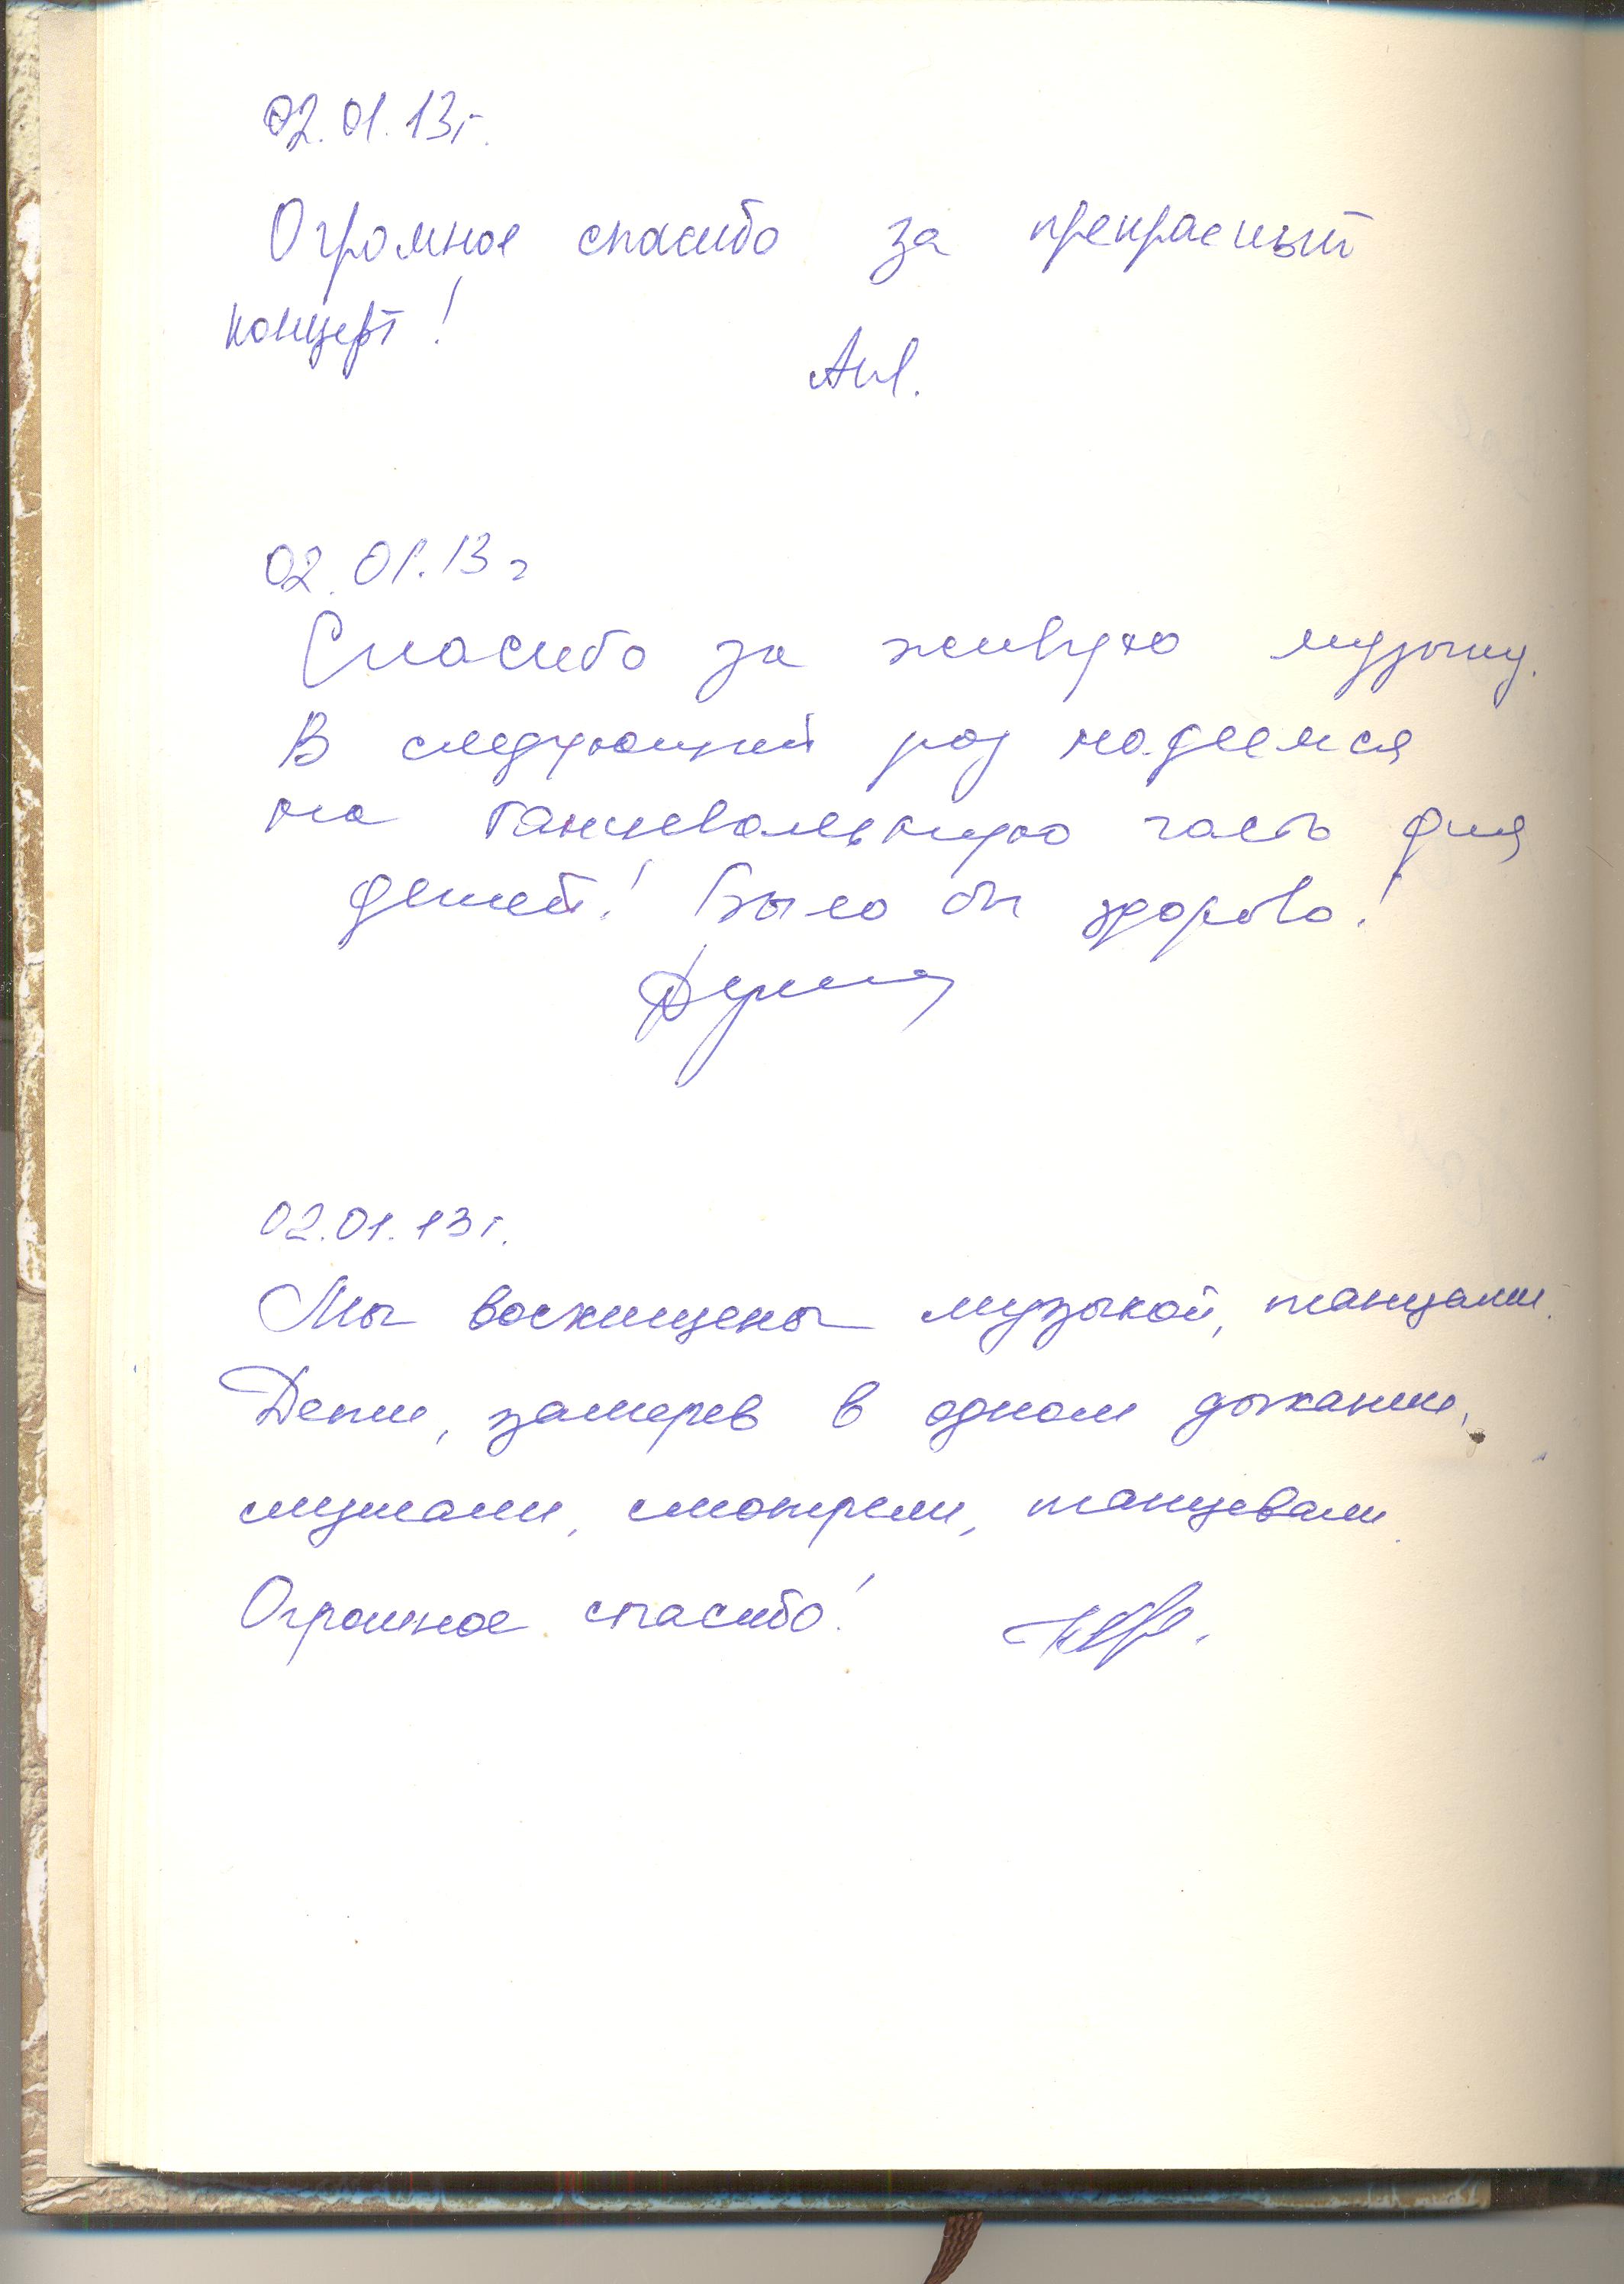 02.01.13г.
Огромное спасибо за прекрасный
концерт!
02.01.13г
Спасибо за живую музыку.
В следующий раз надеемся
на танцевальную часть для
детей! Было бы здорово!
02.01.13г.
Мы восхищены музыкой, танцами.
Дети, замерев в одном дыхании,
слушали, смотрели, танцевали.
Огромное спасибо!